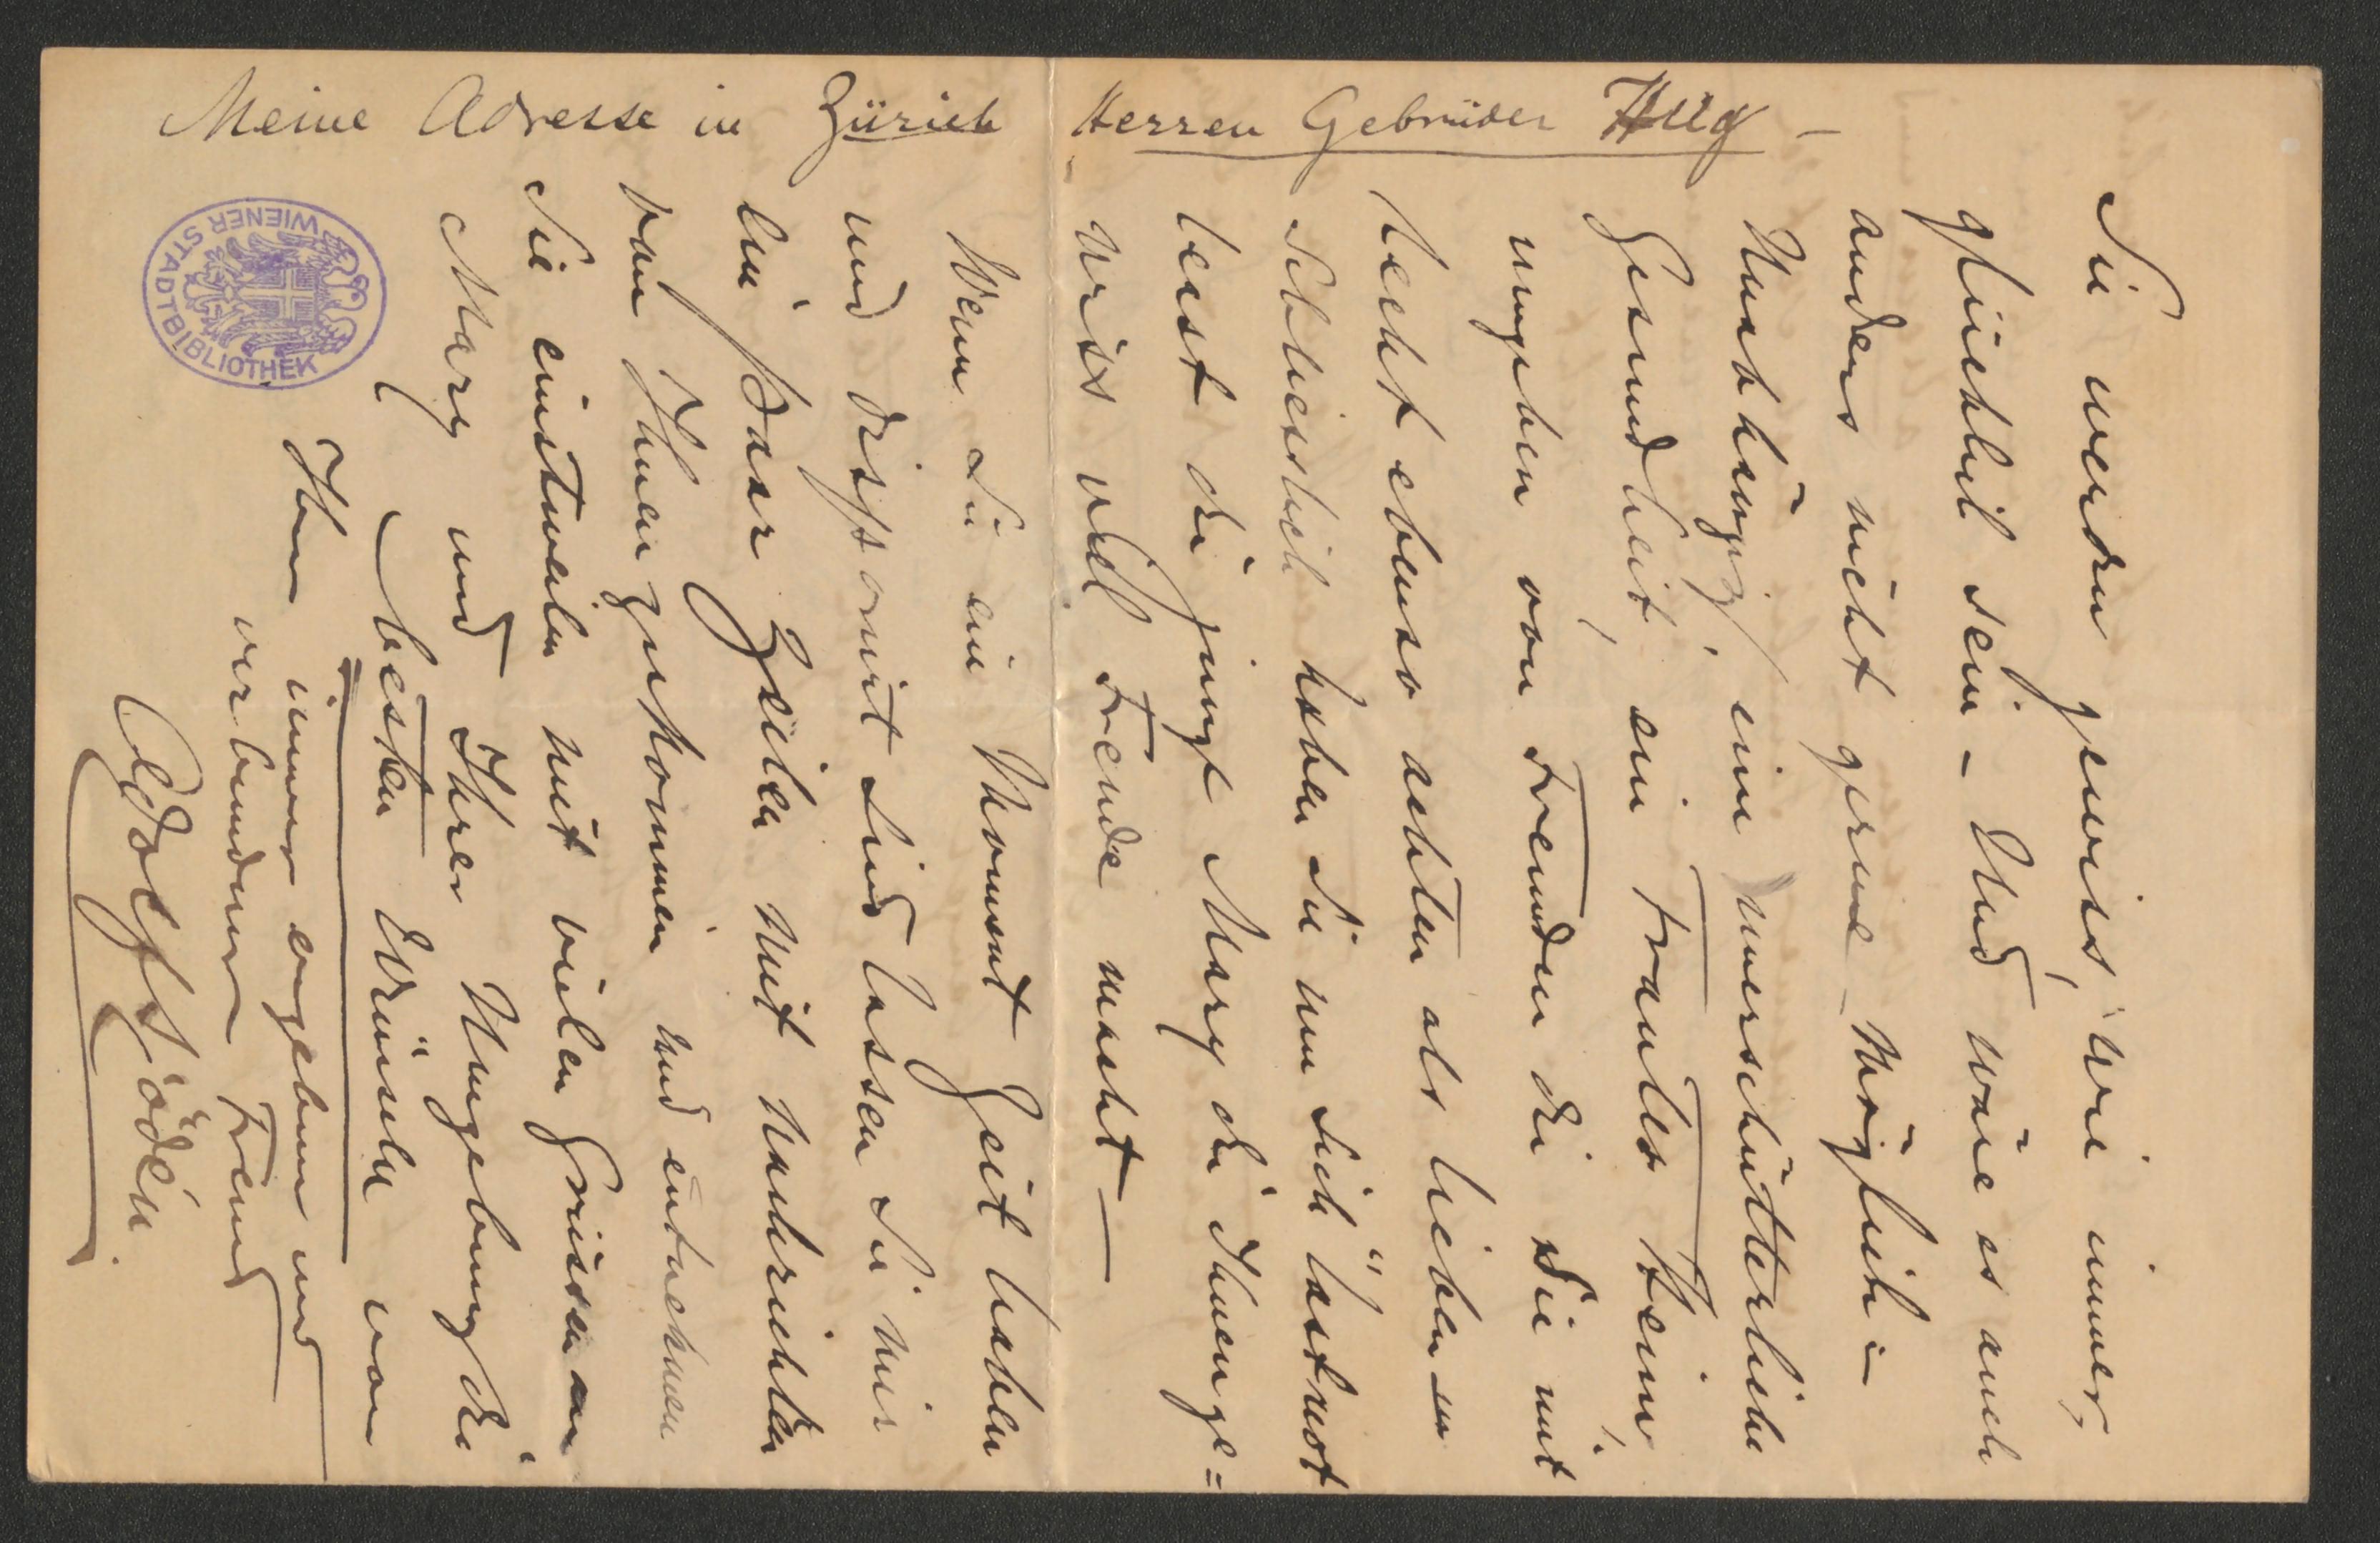 Meine Adresse in Zürich Herren Gebrüder Hug –
Sie werden gewiss, wie immer,
glücklich sein – Und wäre es auch
anders nicht gerne möglich –
Unabhängig, eine unerschütterliche
Gesundheit, ein trautes Heim,
umgeben von Freunden die Sie mit
Recht ebenso achten als lieben –
Schliesslich haben Sie nun Sich
best die junge Mary die Ihnen ge=
wiss viel Freude macht –
Wenn Sie ein Moment Zeit haben
und disponirt sind lassen Sie mir
ein paar Zeilen mit Nachrichten
von Ihnen zukommen und entnehmen
Sie einstweilen mit vielen Grüssen an
Mary und Ihrer Umgebung die
besten Wünsche von
Ihrem immer ergebenen und
verbundenen Freund
Adolf Sjödén.
WIENER STADTBIBLIOTHEK